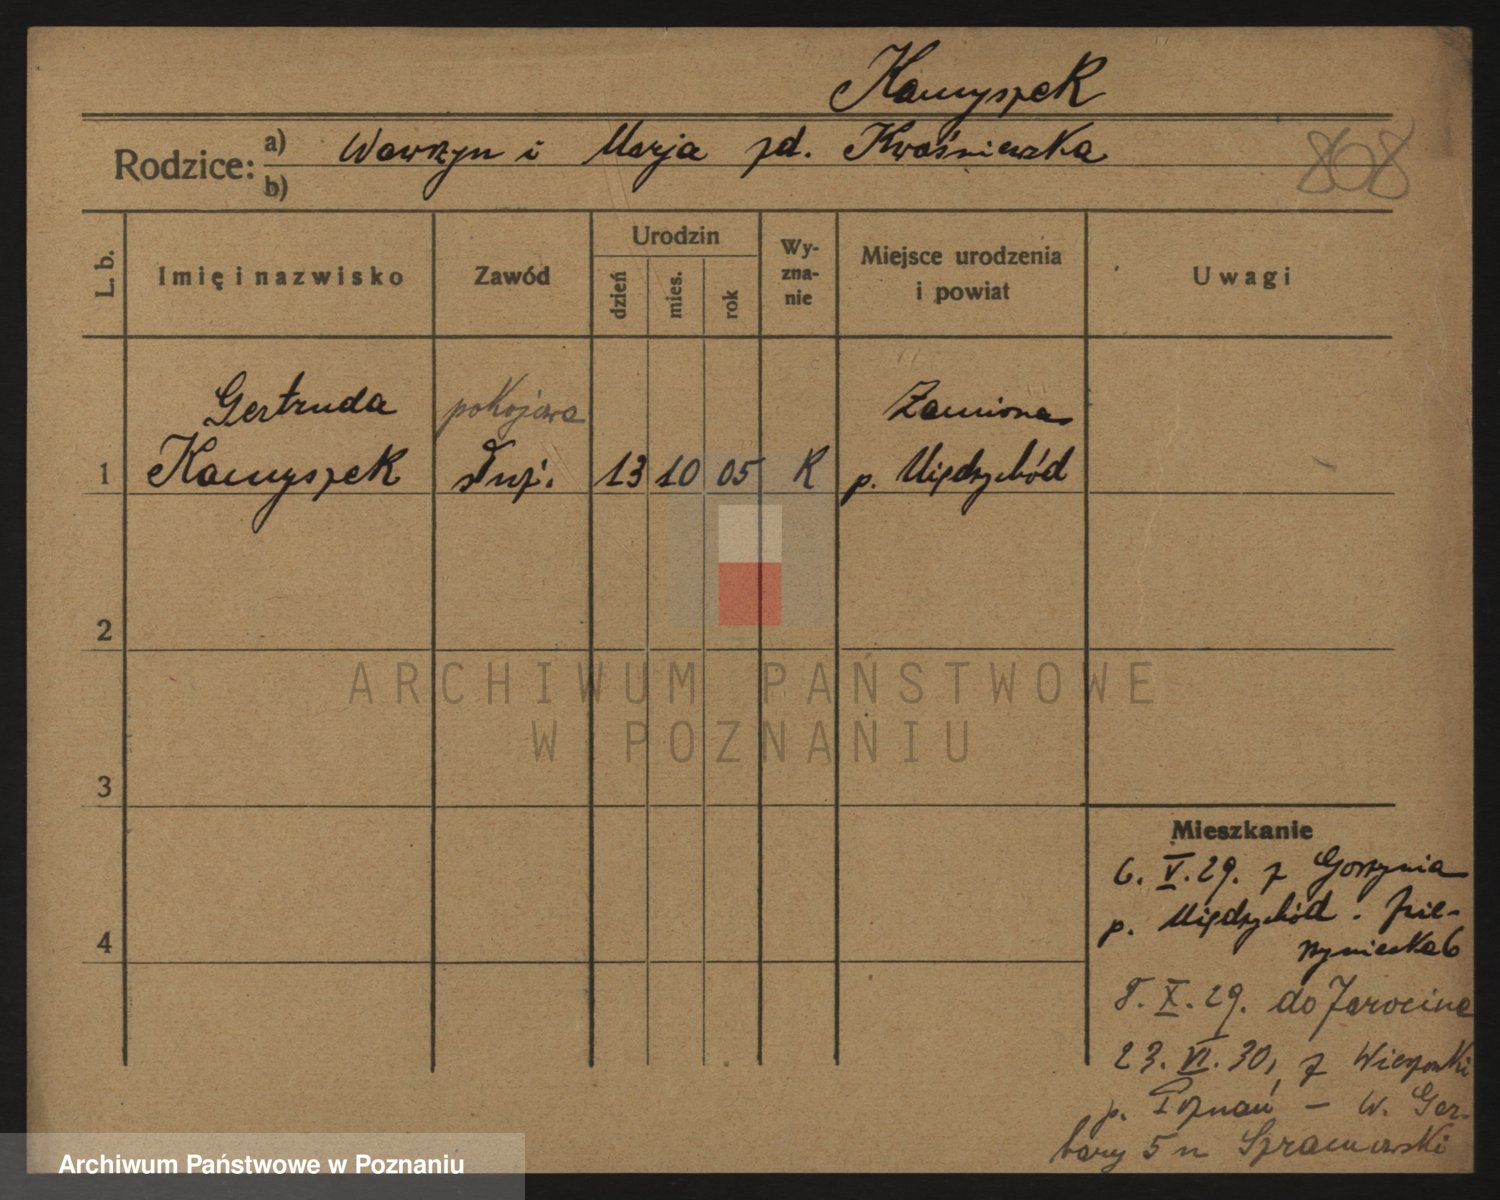 Kamyszek
808
Rodzice: a) Wawrzyn i Marja zd. Kwaśniewska
b)
L. b.
Imię i nazwisko
Zawód
Urodzin
dzień
mies.
rok
Wy-
zna-
nie
Miejsce urodzenia
i powiat
Uwagi
Gertruda pokojowa
1 Kamyszek służ. 13 10 05 K p. Międzychód
2
3
4
ARCHIWUM PAŃSTWOWE
W POZNANIU
Mieszkanie
6. V. 29. z Gorzynia
p. Międzychód.
6
8. X. 29. do Jarocina
23. VI. 30, z
p. Poznań – W. Gar-
bary 5 u
Archiwum Państwowe w Poznaniu